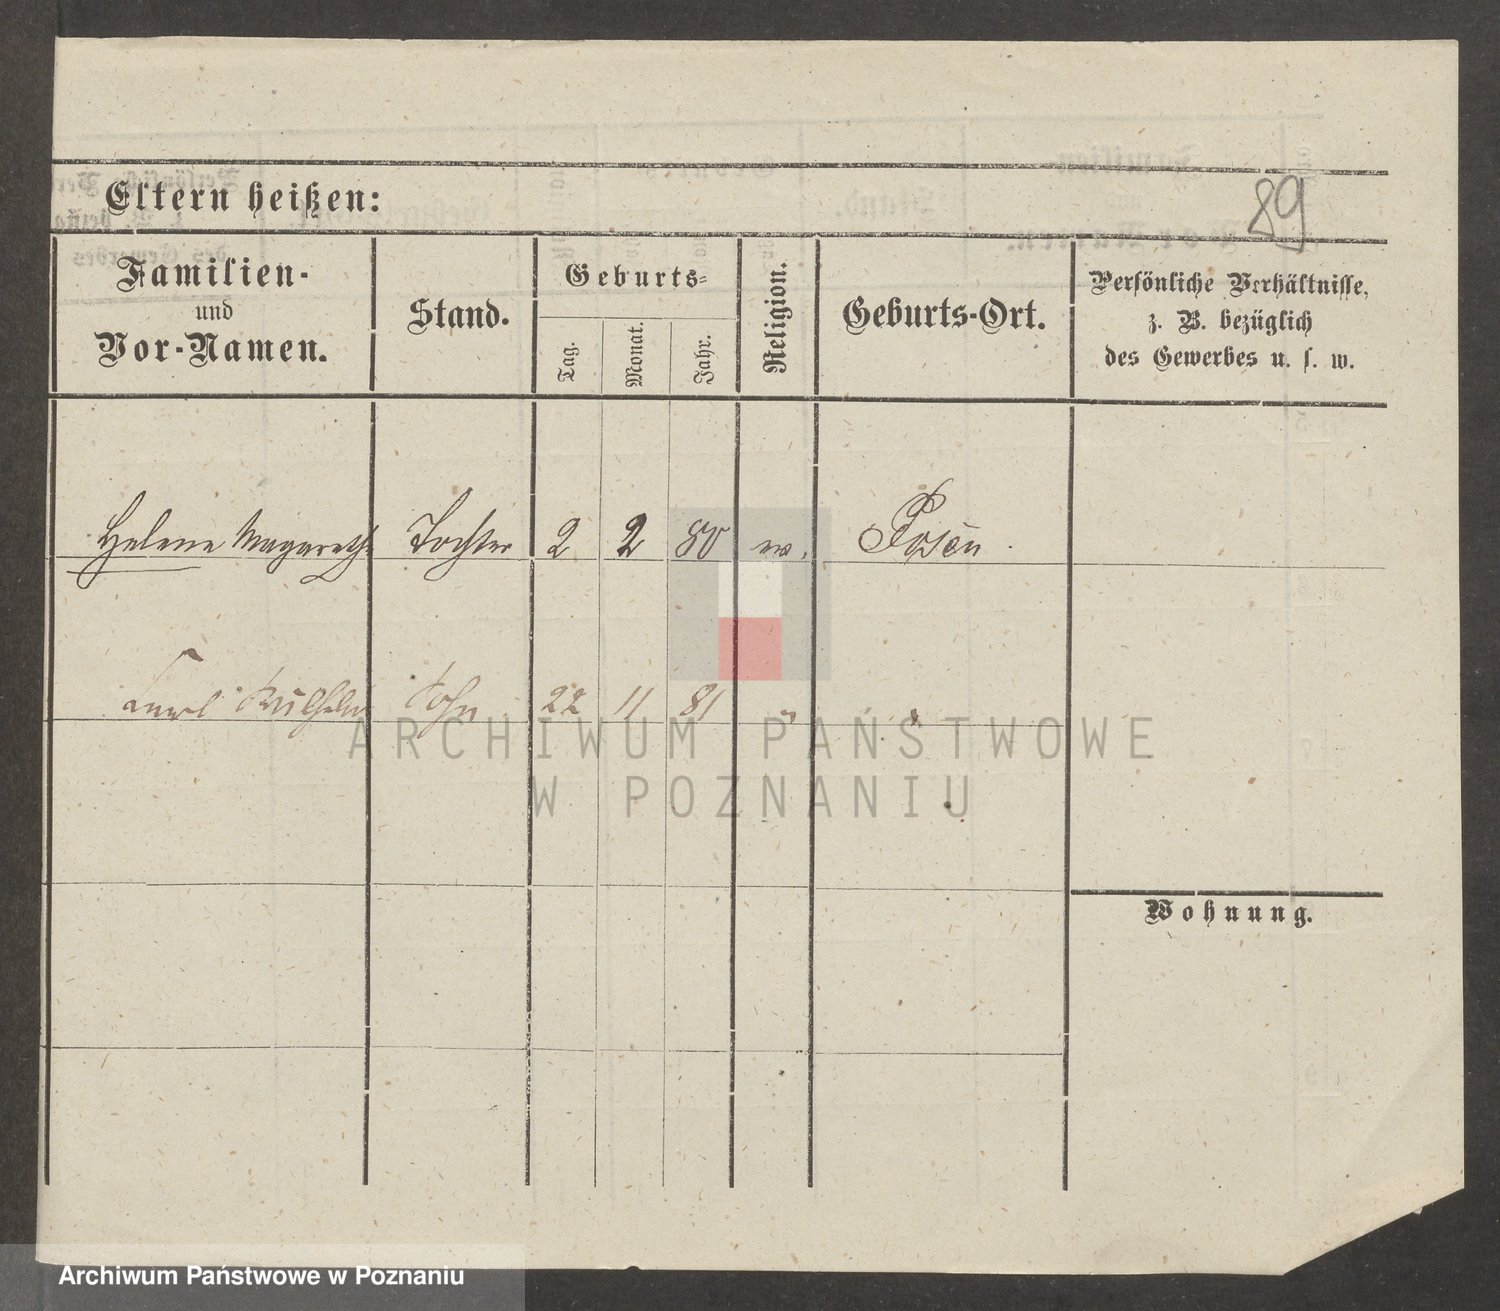 89
Eltern heißen:
Familien-
und
Vor-Namen.
Stand.
Geburts-
Tag.
Monat.
Jahr.
Religion.
Geburts-Ort.
Persönliche Verhältnisse,
z. B. bezüglich
des Gewerbes u. s. w.
Helene Magarethe Tochter 2 2 80 ev. Posen.
Carl Wilhelm Sohn 22 11 81 " "
Wohnung.
ARCHIWUM PAŃSTWOWE
W POZNANIU
Archiwum Państwowe w Poznaniu